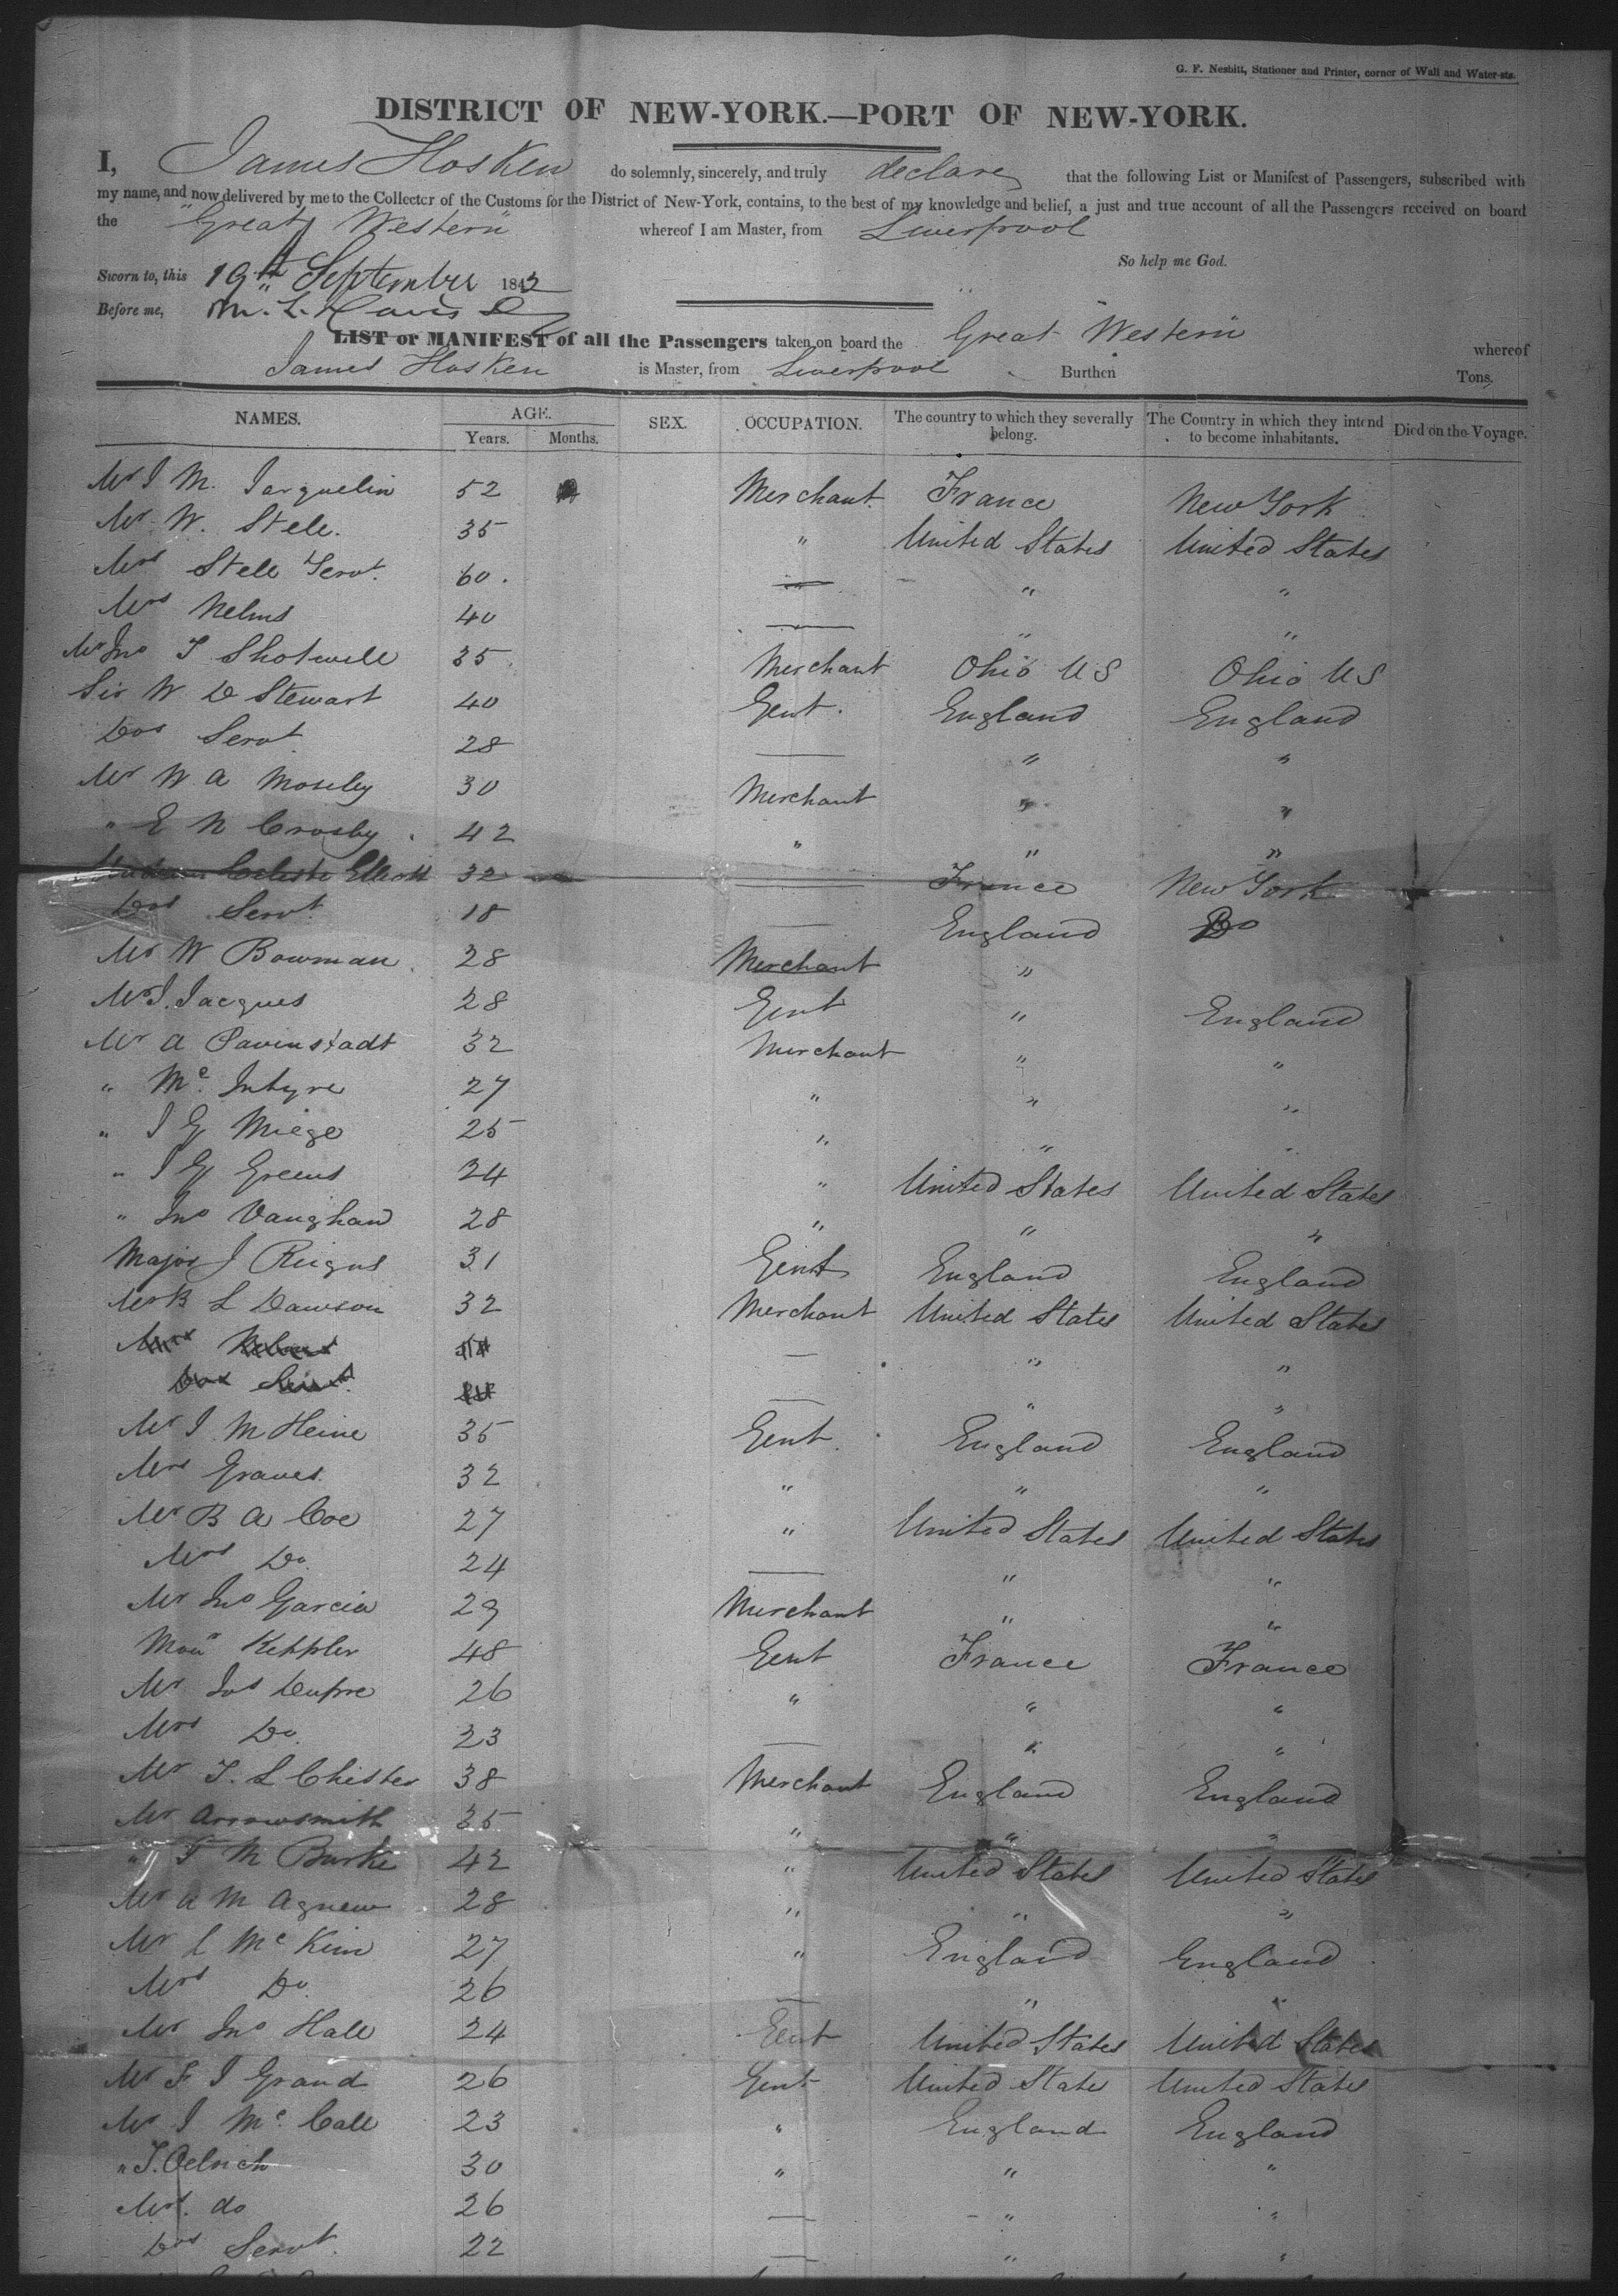 G. F. Nesbitt, Stationer and Printer, corner of Wall and Water-sts.
DISTRICT OF NEW-YORK.—PORT OF NEW-YORK.
I, James Hosken do solemnly, sincerely, and truly declare that the following List or Manifest of Passengers, subscribed with
my name, and now delivered by me to the Collector of the Customs for the District of New-York, contains, to the best of my knowledge and belief, a just and true account of all the Passengers received on board
the "Great Western" whereof I am Master, from Liverpool
So help me God.
Sworn to, this 19th September 1842
Before me, M. L. Davis
LIST or MANIFEST of all the Passengers taken on board the Great Western whereof
James Hosken is Master, from Liverpool Burthen Tons.
NAMES. AGE. Years. Months. SEX. OCCUPATION. The country to which they severally belong. The Country in which they intend to become inhabitants. Died on the Voyage.
Mr J M. Jarquelin 52 Merchant France New York
Mr W. Stele. 35 " United States United States
Mrs Stele Servt. 60. — " "
Mrs Nelms 40 — " "
Mr Jno T Shotwell 35 Merchant Ohio US Ohio US
Sir W D Stewart 40 Gent. England England
Dos Servt 28 — " "
Mr W A Moseley 30 Merchant " "
" E N Crosby 42 " " "
Madam Celeste Elliott 32 — France New York
Dos Servt 18 — England Do
Mr W Bowman 28 Merchant "
Mr J. Jacques 28 Gent " England
Mr A Pavenstadt 32 Merchant " "
" Mc Intyre 27 " " "
" J G Miege 25 " " "
" J G Greens 24 " United States United States
" Jno Vaughan 28 " " "
Major J Reigns 31 Gent England England
Mr B L Dawson 32 Merchant United States United States
Mrs Nelms — " "
Dos Servt. — " "
Mr J M Heine 35 Gent. England England
Mrs Graves 32 " " "
Mr B A Coe 27 " United States United States
Mrs Do. 24 — " "
Mr Jno Garcia 29 Merchant " "
Monr Keppler 48 Gent France France
Mr Jos Dupre 26 " " "
Mrs Do. 23 — " "
Mr T. L Chister 38 Merchant England England
Mr Arrowsmith 35 " " "
" T M Burke 42 " United States United States
Mr A M Agnew 28 " " "
Mr L Mc Kim 27 " England England
Mrs Do. 26 — " "
Mr Jno Hall 24 Gent United States United States
Mr F J Grand 26 Gent United State United States
Mr J Mc Call 23 " England England
" J. Oelrich 30 " " "
Mrs. do 26 — " "
Dos Servt. 22 — " "